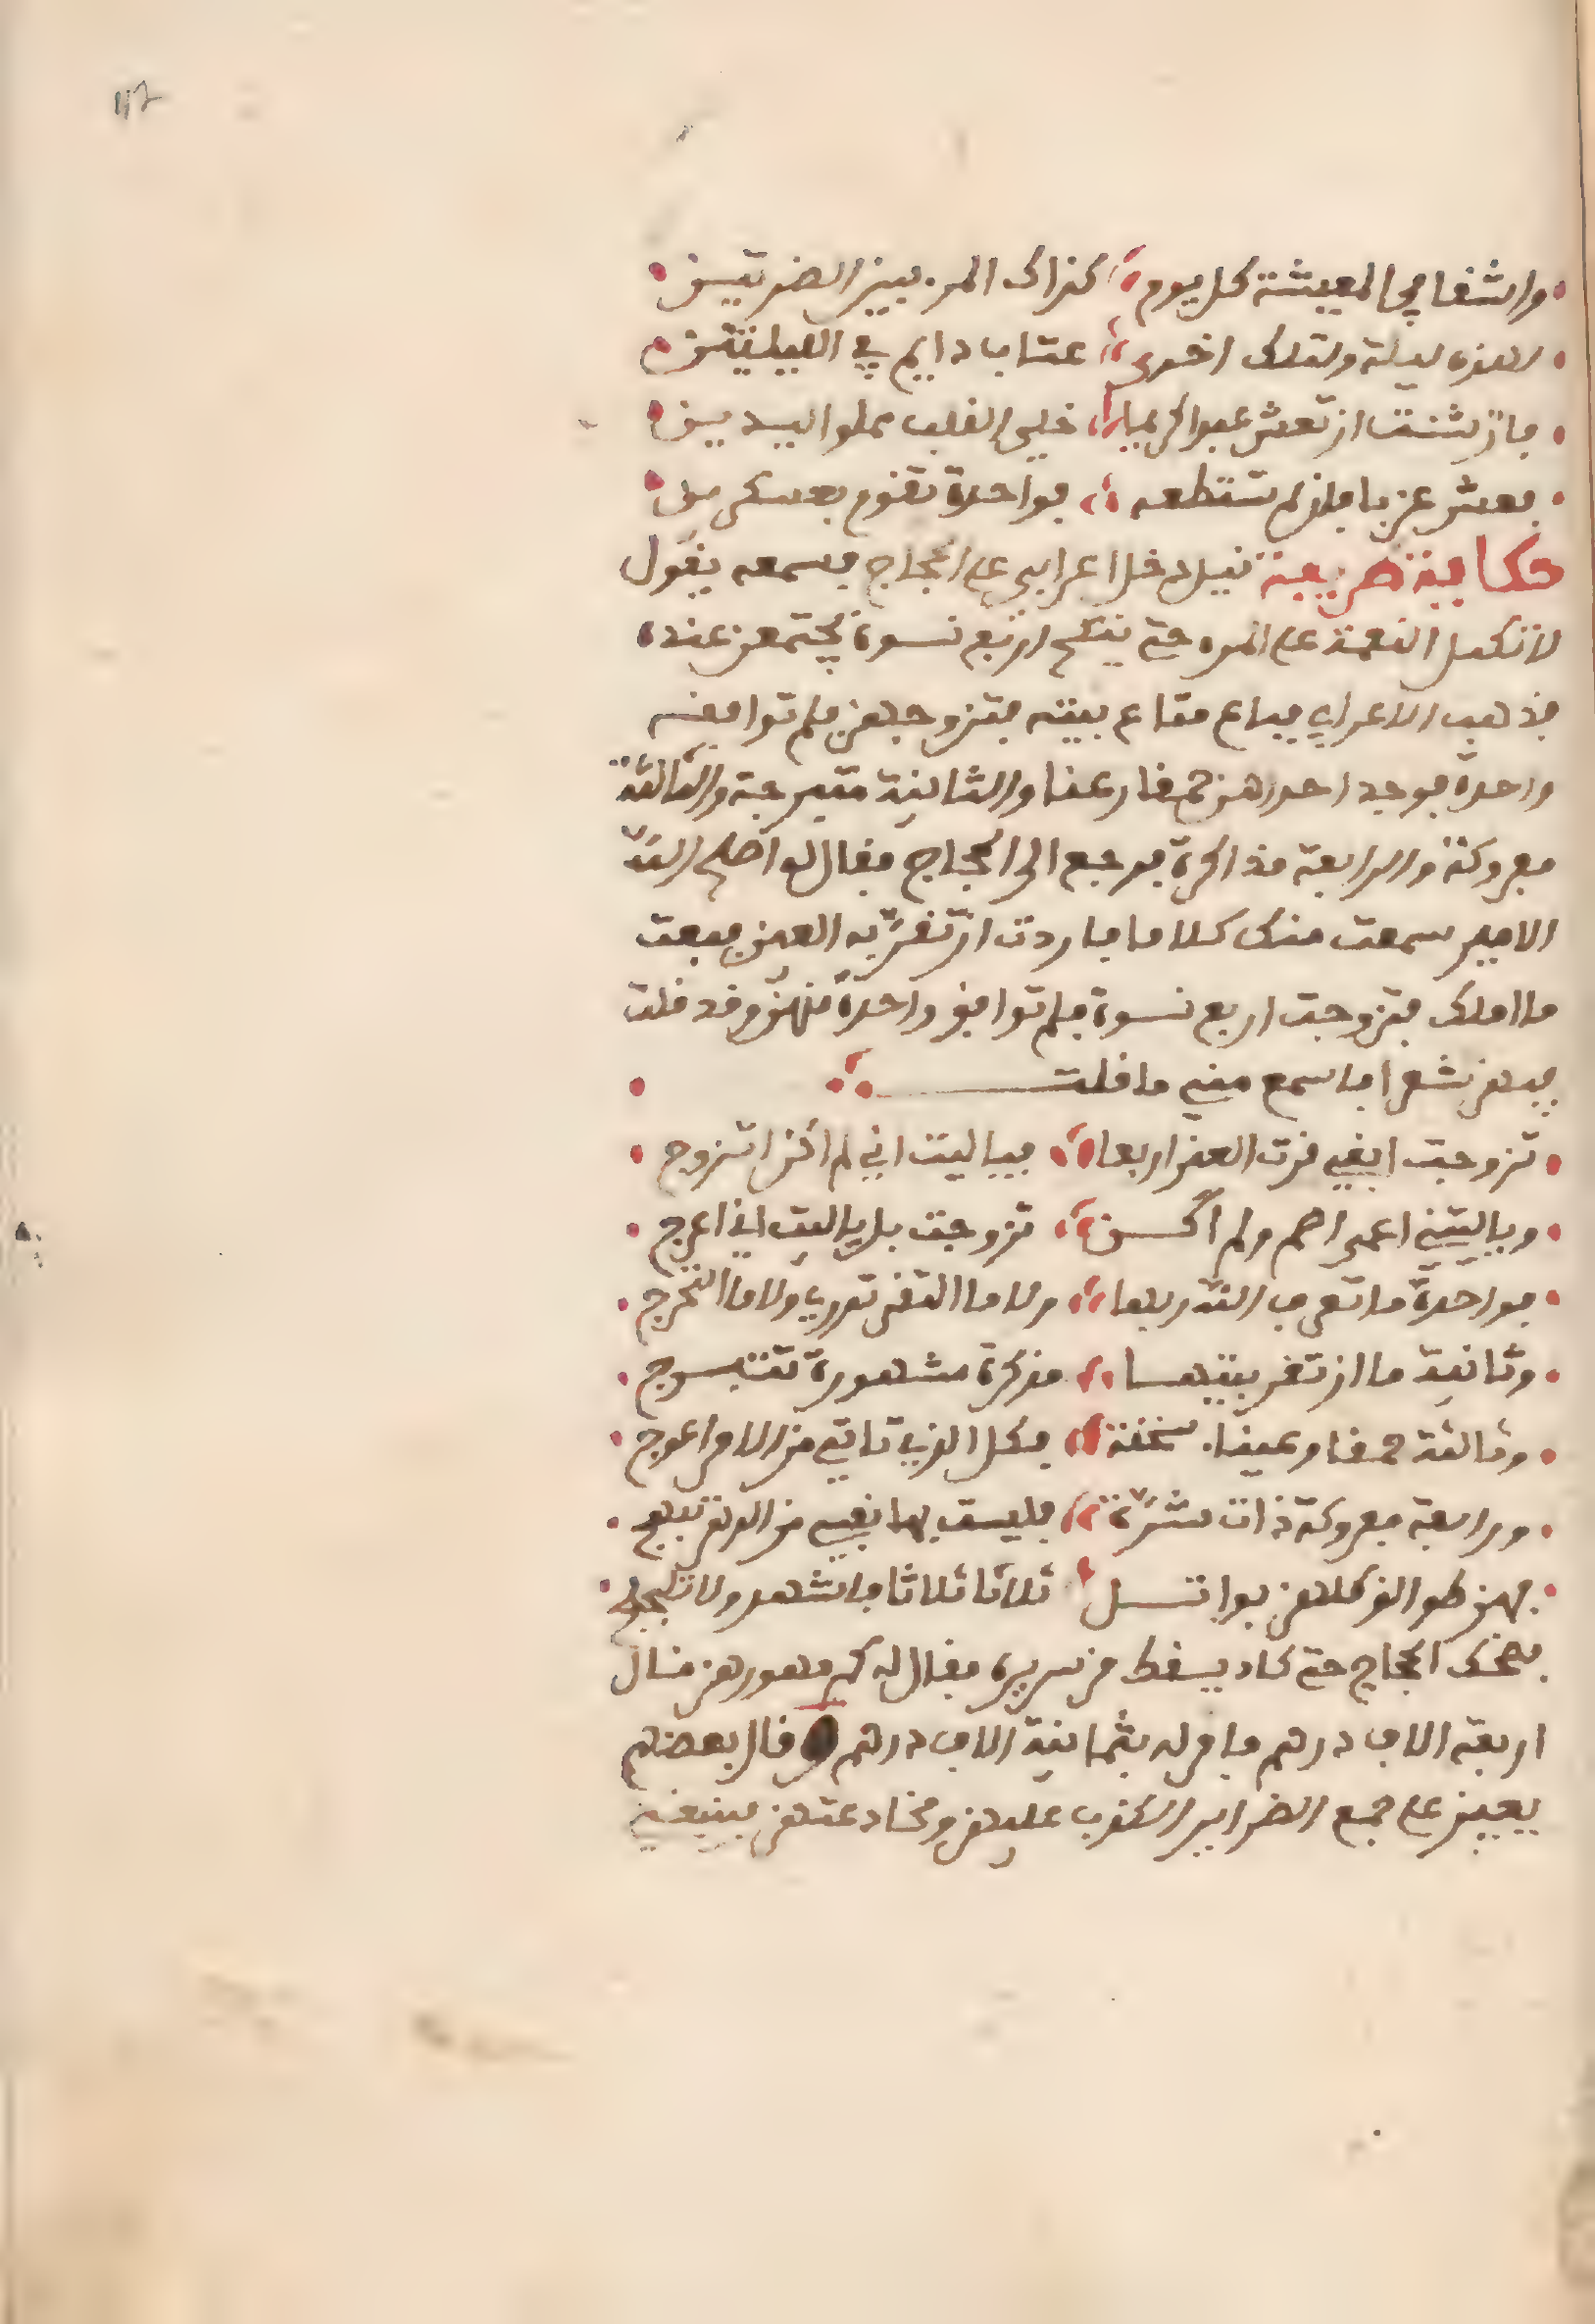 واشقا في المعيشة كل يوم كذاك المر بين الضرتين
لهذه ليلة ولتلك اخرى عتاب دايم في الليلتين
فان شئت ان تعش عبدا كريما خلي القلب مملو اليدين
فعش عزبا فان لم تستطعه فواحدة تقوم بعسكرين
حكاية ظريفة قيل دخل اعرابي على الحجاج فسمعه يقول
لا تكمل النعمة على المرء حتى ينكح اربع نسوة يجتمعن عنده
فذهب الاعرابي فباع متاع بيته فتزوجهن فلم توافقه
واحدة فوجد احداهن حمقا رعنا والثانية متبرجة والثالثة
مفروكة والرابعة مذاكرة فرجع الى الحجاج فقال له اصلح الله
الامير سمعت منك كلاما فاردت ان تقر به العين فبعت
ما املك فتزوجت اربع نسوة فلم توافق واحدة منهن وقد قلت
فيهن شعرا فاسمع مني ما قلت
تزوجت ابغي قرت العين اربعا فيا ليت اني لم اكن اتزوج
ويا ليتني اعمى اصم ولم اكن تزوجت بل يا ليت اني اعرج
فواحدة ما تعرف الله ربها ولا ما التقى تدري ولا ما التحرج
وثانية ما ان تقر ببيتها مذكرة مشهورة تتبرج
وثالثة حمقا رعينا سخنة فكل الذي تاتي من الامر اعوج
ورابعة مفروكة ذات شرة فليست بها نفسي من الدهر تبهج
فهن طوالق كلهن بواتل ثلاثا ثلاثا فاشهدوا لا تلجلجوا
فضحك الحجاج حتى كاد يسقط من سريره فقال له كم مهورهن قال
اربعة الاف درهم فامر له بثمانية الاف درهم وقال بعضهم
يعين على جمع الضراير الكذب عليهن ومخادعتهن فينبغي